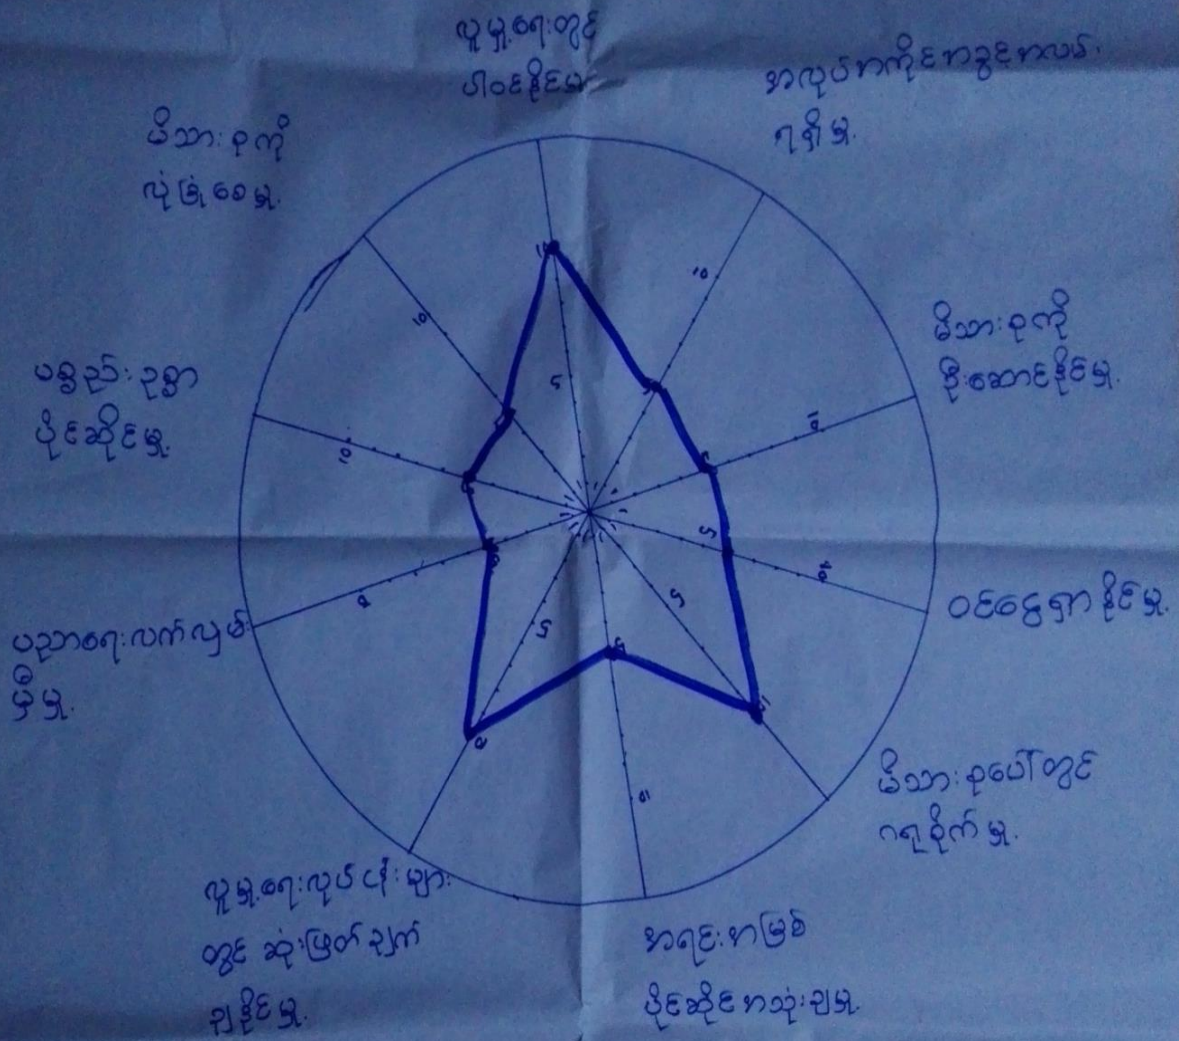 လူမှု့ရေးတွင်
ပါဝင်နိုင်မှု
အလုပ်အကိုင်အခွင့်အလမ်း
ရရှိမှု.
မိသားစုကို
ဦးဆောင်နိုင်မှု.
ဝင်ငွေရှာနိုင်မှု.
မိသားစုပေါ်တွင်
ဂရုစိုက်မှု.
အရင်းအမြစ်
ပိုင်ဆိုင်အသုံးချမှု.
လူမှု့ရေးလုပ်ငန်းများ
တွင် ဆုံးဖြတ်ချက်
ချနိုင်မှု.
ပညာရေးလက်လှမ်း
မှီမှု.
ပစ္စည်းဥစ္စာ
ပိုင်ဆိုင်မှု.
မိသားစုကို
လုံခြုံစေမှု.
10
10
10
10
10
10
5
5
5
5